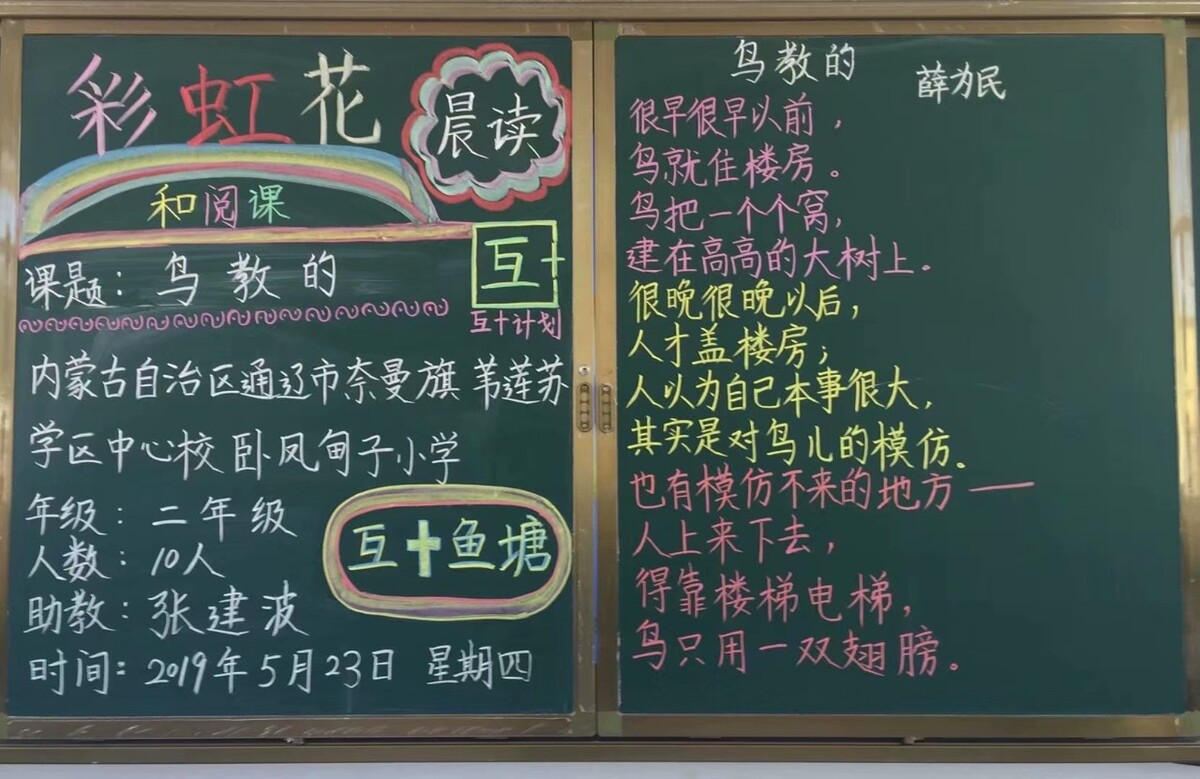 彩虹花
晨读
和阅课
课题：鸟教的
互+
互+计划
内蒙古自治区通辽市奈曼旗苇莲苏
学区中心校卧凤甸子小学
年级：二年级
人数：10人
助教：张建波
时间：2019年5月23日 星期四
互+鱼塘
鸟教的
薛为民
很早很早以前，
鸟就住楼房。
鸟把一个个窝，
建在高高的大树上。
很晚很晚以后，
人才盖楼房；
人以为自己本事很大，
其实是对鸟儿的模仿。
也有模仿不来的地方——
人上来下去，
得靠楼梯电梯，
鸟只用一双翅膀。